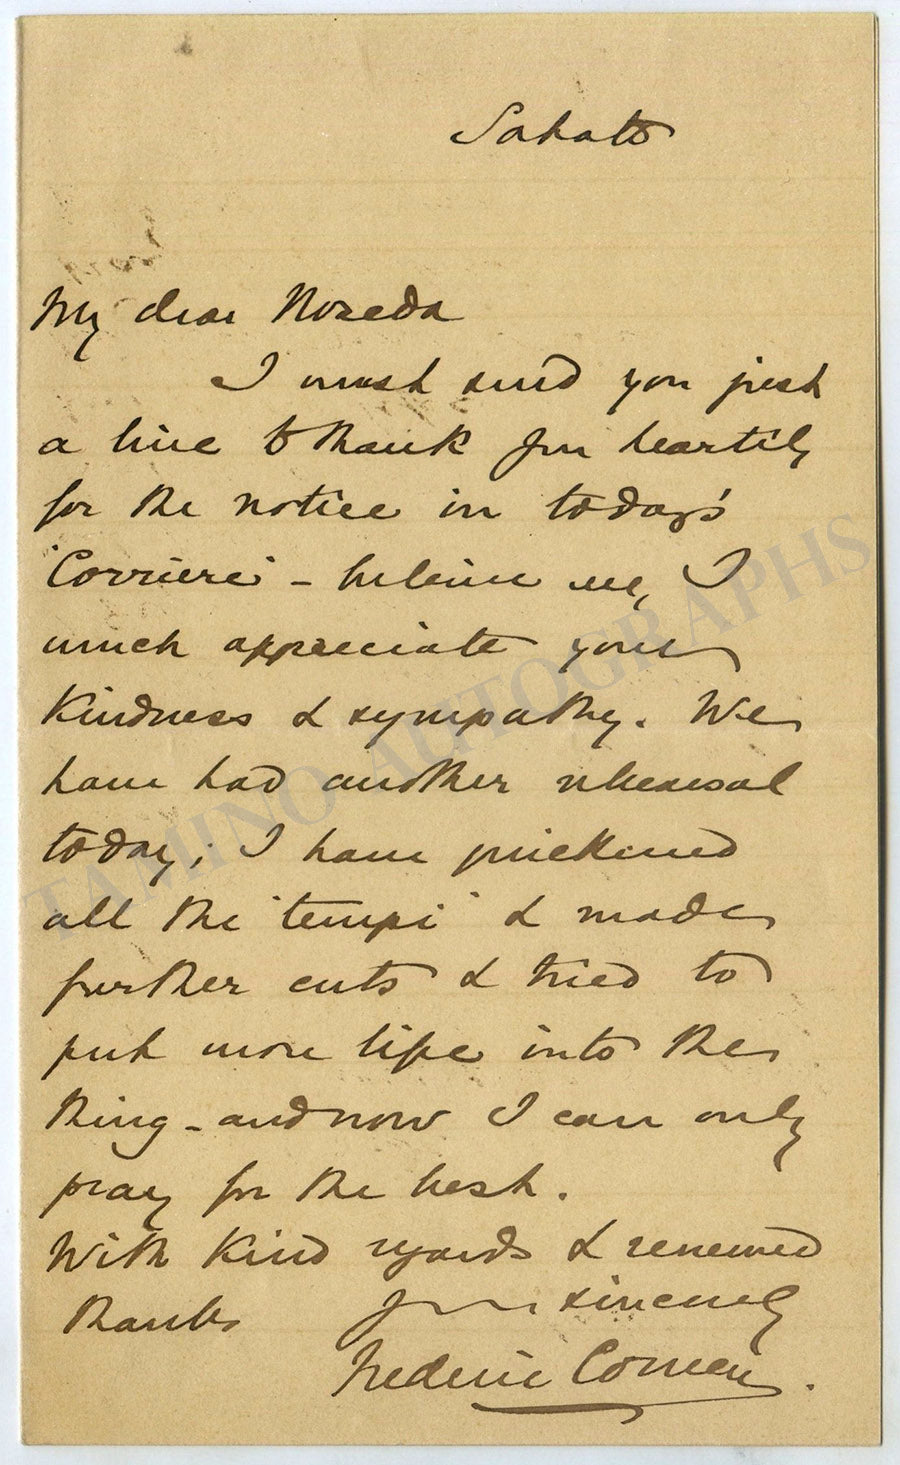 Sabato
My dear Noseda
I must send you just
a line to thank you heartily
for the notice in today's
'Corriere' - believe me, I
much appreciate your
kindness & sympathy. We
have had another rehearsal
today; I have quickened
all the 'tempi' & made
further cuts & tried to
put more life into the
thing - and now I can only
pray for the best.
With kind regards & renewed
thanks yours sincerely
Frederic Cowen.
TAMINO AUTOGRAPHS